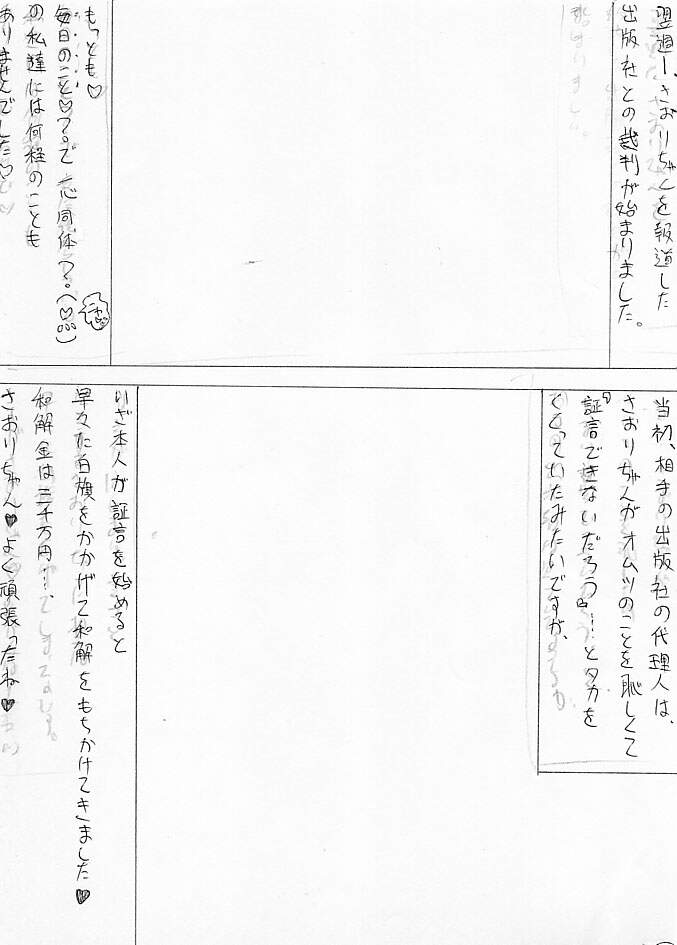 翌週ー、さおりちゃんを報道した
出版社との裁判が始まりました。
もっとも♡
毎日のこと♡？。で一心同体？。
の私達には何程のことも
ありませんでした♡
当初、相手の出版社の代理人は、
さおりちゃんがオムツのことを恥しくて
『証言できないだろう』…とタカを
くくっていたみたいですが、
いざ本人が証言を始めると
早々た白旗をかかげて和解をもちかけてきました♥
和解金は三千万円…、
さおりちゃん♥よく頑張ったね♥